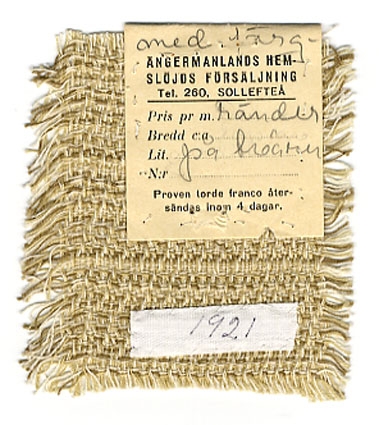 med färg-
ÅNGERMANLANDS HEM-
SLÖJDS FÖRSÄLJNING
Tel. 260, SOLLEFTEÅ
Pris pr m. ränder
Bredd c:a
Lit. på bredden
N:r
Proven torde franco åter-
sändas inom 4 dagar.
1921